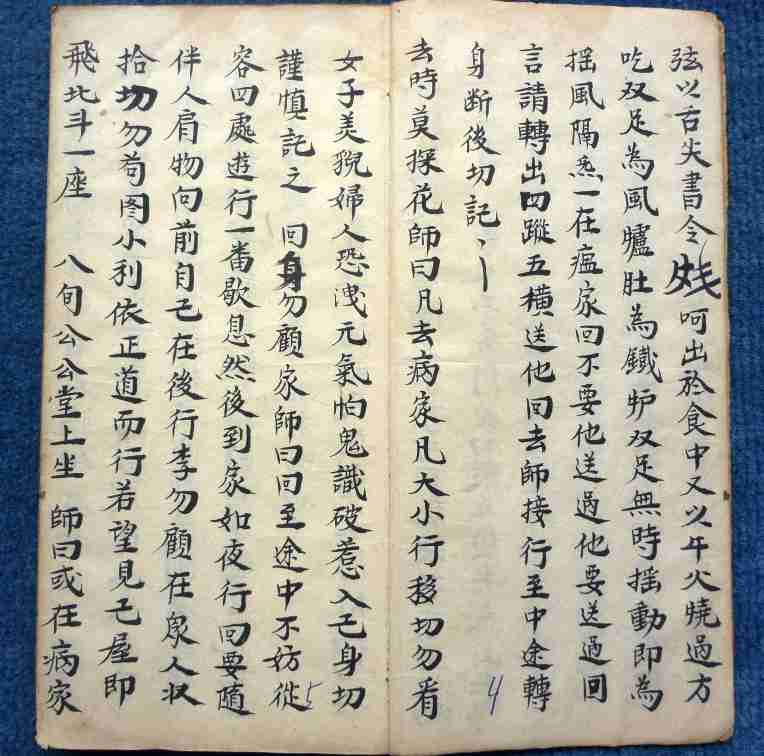 弦以舌尖書令㦮呵出於食中又以午火燒過方
吃双足為風爐肚為鐵炉双足無時揺動即為
揺風隔炁一在瘟家回不要他送過他要送過回
言請轉出四蹤五橫送他回去師接行至中途轉
身断後切記丶丨
去時莫探花師曰凡去病家凡大小行移切勿看
4
女子美貌婦人恐洩元氣怕鬼識破惹入己身切
謹慎記之 回身勿顧家師曰回至途中不妨從
5
容四處遊行一番歇息然後到家如夜行回要随
伴人肩物向前自己在後行李勿顧在泉人状
拾切勿苟图小利依正道而行若望見己屋即
飛北斗一座 八旬公公堂上坐 師曰或在病家